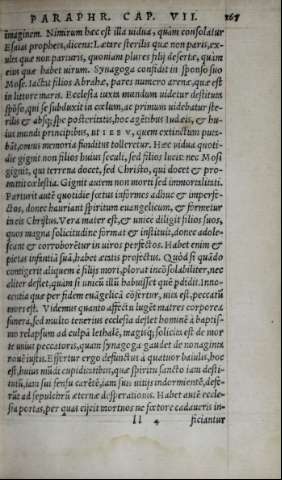 PARAPHR. CAP. VII. 267
imaginem. Nimirum hæc est illa uidua, quàm consolatur
Esaias propheta, dicens: Lætare sterilis quæ non paris, ex-
ulta quæ non parturis, quoniam plures filij desertæ, quàm
eius quæ habet uirum. Synagoga confidit in sponso suo
Mose. Iactat filios Abrahæ, pares numero arenæ, quæ est
in littore maris. Ecclesia iuxta mundum uidetur destituta
spõso, qui se subduxit in cœlum, ac primum uidebatur ste-
rilis & absq; spe posteritatis, hoc agẽtibus Iudæis, & hu-
ius mundi principibus, ut IESV, quem extinctum puta-
bãt, omnis memoria funditus tolleretur. Hæc uidua quoti-
die gignit non filios huius seculi, sed filios lucis: nec Mosi
gignit, qui terrena docet, sed Christo, qui docet & pro-
mittit cœlestia. Gignit autem non morti sed immortalitati.
Parturit autẽ quotidie fœtus informes adhuc & imperfe-
ctos, donec hauriant spiritum euangelicum, & formetur
in eis Christus. Vera mater est, & unice diligit filios suos,
quos magna solicitudine format & instituit, donec adole-
scant & corroborẽtur in uiros perfectos. Habet enim &
pietas infantiã suã, habet ætatis profectus. Quòd si quãdo
contigerit aliquem è filijs mori, plorat incõsolabiliter, nec
aliter deflet, quàm si unicũ illũ habuisset quẽ pdidit. Inno-
centia quæ per fidem euãgelicã cõfertur, uita est, peccatũ
mors est. Videmus quanto affectu lugẽt matres corporea
funera, sed multo tenerius ecclesia deflet hominẽ à baptis-
mo relapsum ad culpã lethalẽ, magisq; solicita est de mor
te unius peccatoris, quam synagoga gaudet de nonaginta
nouẽ iustis. Effertur ergo defunctus à quatuor baiulis, hoc
est, huius mũdi cupiditatibus, quæ spiritu sancto iam desti-
tutũ, iam sui sensu carẽtẽ, iam suis uitijs indormientẽ, defe-
rũt ad sepulchrũ æternæ desperationis. Habet autẽ eccle-
sia portas, per quas eijcit mortuos ne fœtore cadaueris in-
ll 4 ficiantur